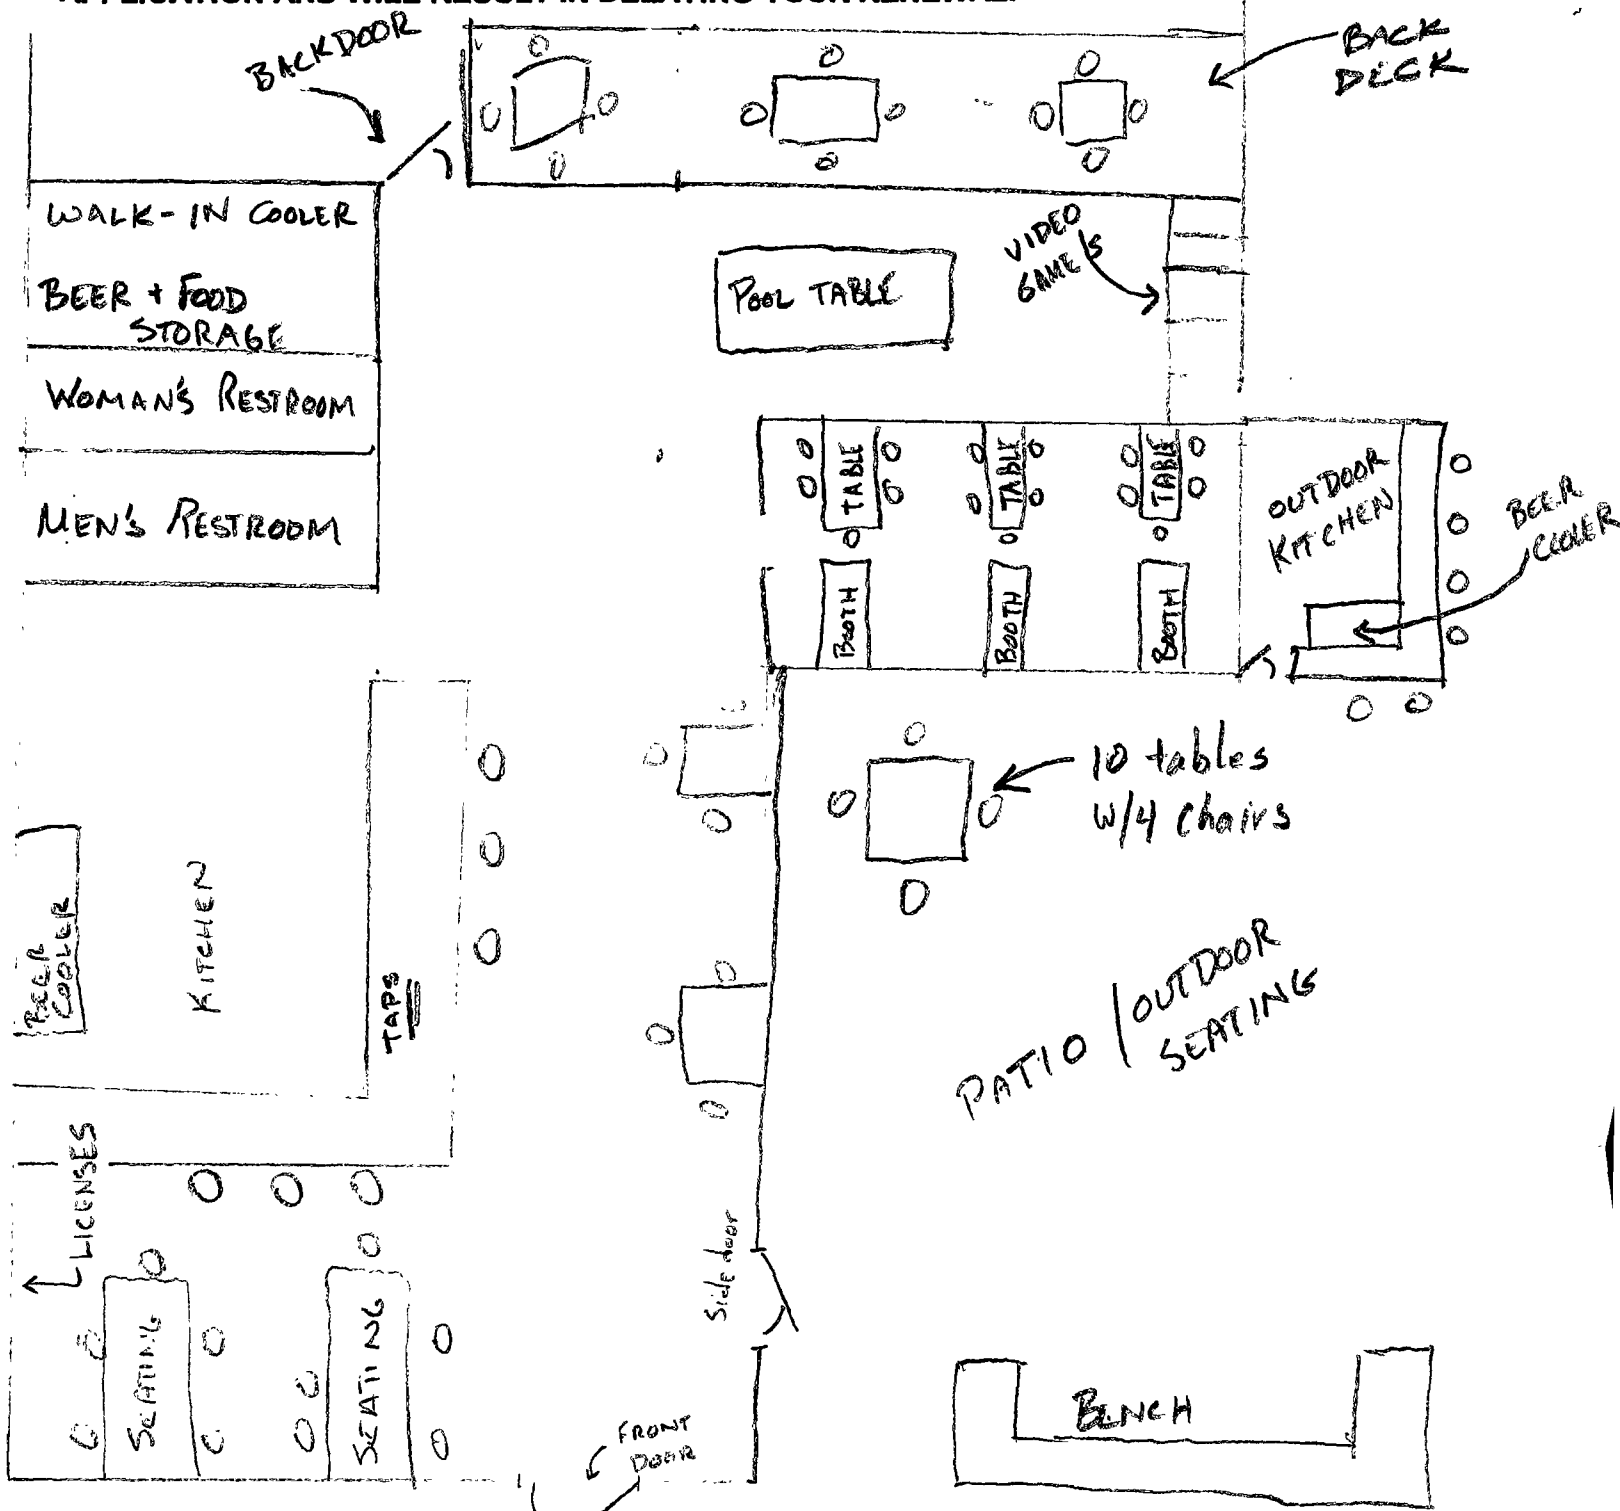 APPLICATION AND WILL RESULT IN DELAYING YOUR RENEWAL.
BACKDOOR
BACK
DECK
WALK-IN COOLER
BEER + FOOD
STORAGE
WOMAN'S RESTROOM
MEN'S RESTROOM
POOL TABLE
VIDEO
GAME'S
TABLE
TABLE
TABLE
BOOTH
BOOTH
BOOTH
OUTDOOR
KITCHEN
BEER
COOLER
10 tables
W/4 Chairs
BEER
COOLER
KITCHEN
TAPS
PATIO / OUTDOOR
SEATING
LICENSES
SEATING
SEATING
Side door
FRONT
DOOR
BENCH